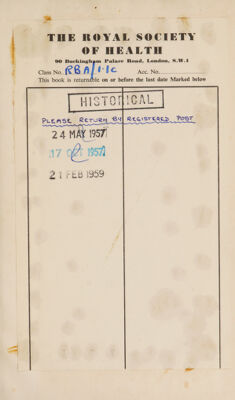 THE ROYAL SOCIETY
OF HEALTH
90 Buckingham Palace Road, London, S.W.1
Class No. RBA/1·1c Acc. No.
This book is returnable on or before the last date Marked below
HISTORICAL
PLEASE RETURN BY REGISTERED POST
24 MAY 1957
17 OCT 1957
21 FEB 1959